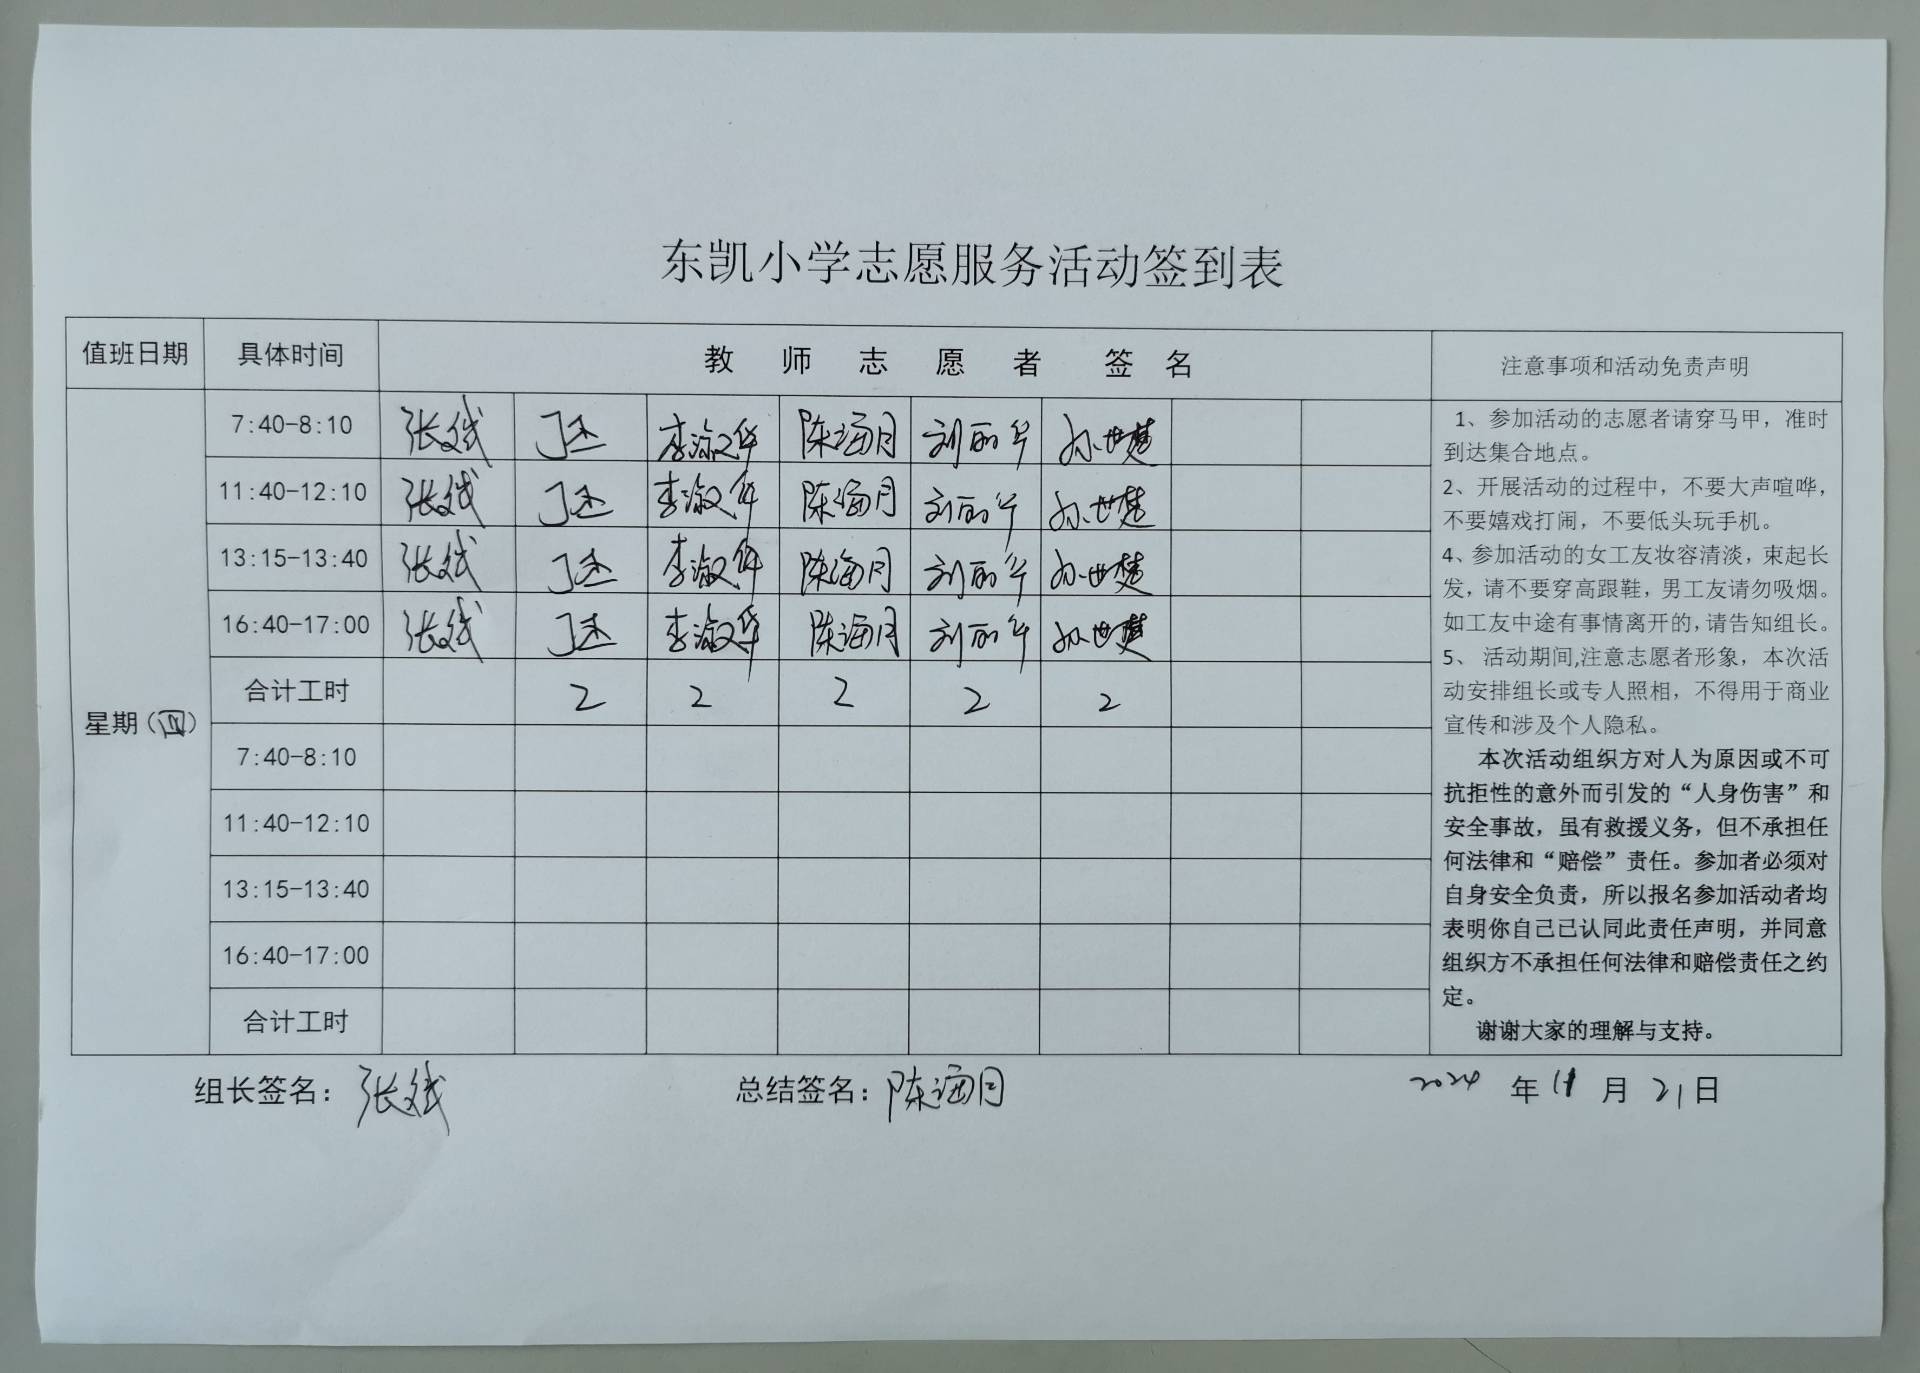 东凯小学志愿服务活动签到表
值班日期 具体时间 教师志愿者签名 注意事项和活动免责声明
星期(四)
7:40-8:10 张斌 丁杰 李淑华 陈海月 刘丽华 孙世楚
11:40-12:10 张斌 丁杰 李淑华 陈海月 刘丽华 孙世楚
13:15-13:40 张斌 丁杰 李淑华 陈海月 刘丽华 孙世楚
16:40-17:00 张斌 丁杰 李淑华 陈海月 刘丽华 孙世楚
合计工时 2 2 2 2 2
7:40-8:10
11:40-12:10
13:15-13:40
16:40-17:00
合计工时
1、参加活动的志愿者请穿马甲，准时
到达集合地点。
2、开展活动的过程中，不要大声喧哗，
不要嬉戏打闹，不要低头玩手机。
4、参加活动的女工友妆容清淡，束起长
发，请不要穿高跟鞋，男工友请勿吸烟。
如工友中途有事情离开的，请告知组长。
5、 活动期间,注意志愿者形象，本次活
动安排组长或专人照相，不得用于商业
宣传和涉及个人隐私。
本次活动组织方对人为原因或不可
抗拒性的意外而引发的“人身伤害”和
安全事故，虽有救援义务，但不承担任
何法律和“赔偿”责任。参加者必须对
自身安全负责，所以报名参加活动者均
表明你自己已认同此责任声明，并同意
组织方不承担任何法律和赔偿责任之约
定。
谢谢大家的理解与支持。
组长签名：张斌 总结签名：陈海月 2024 年 11 月 21 日